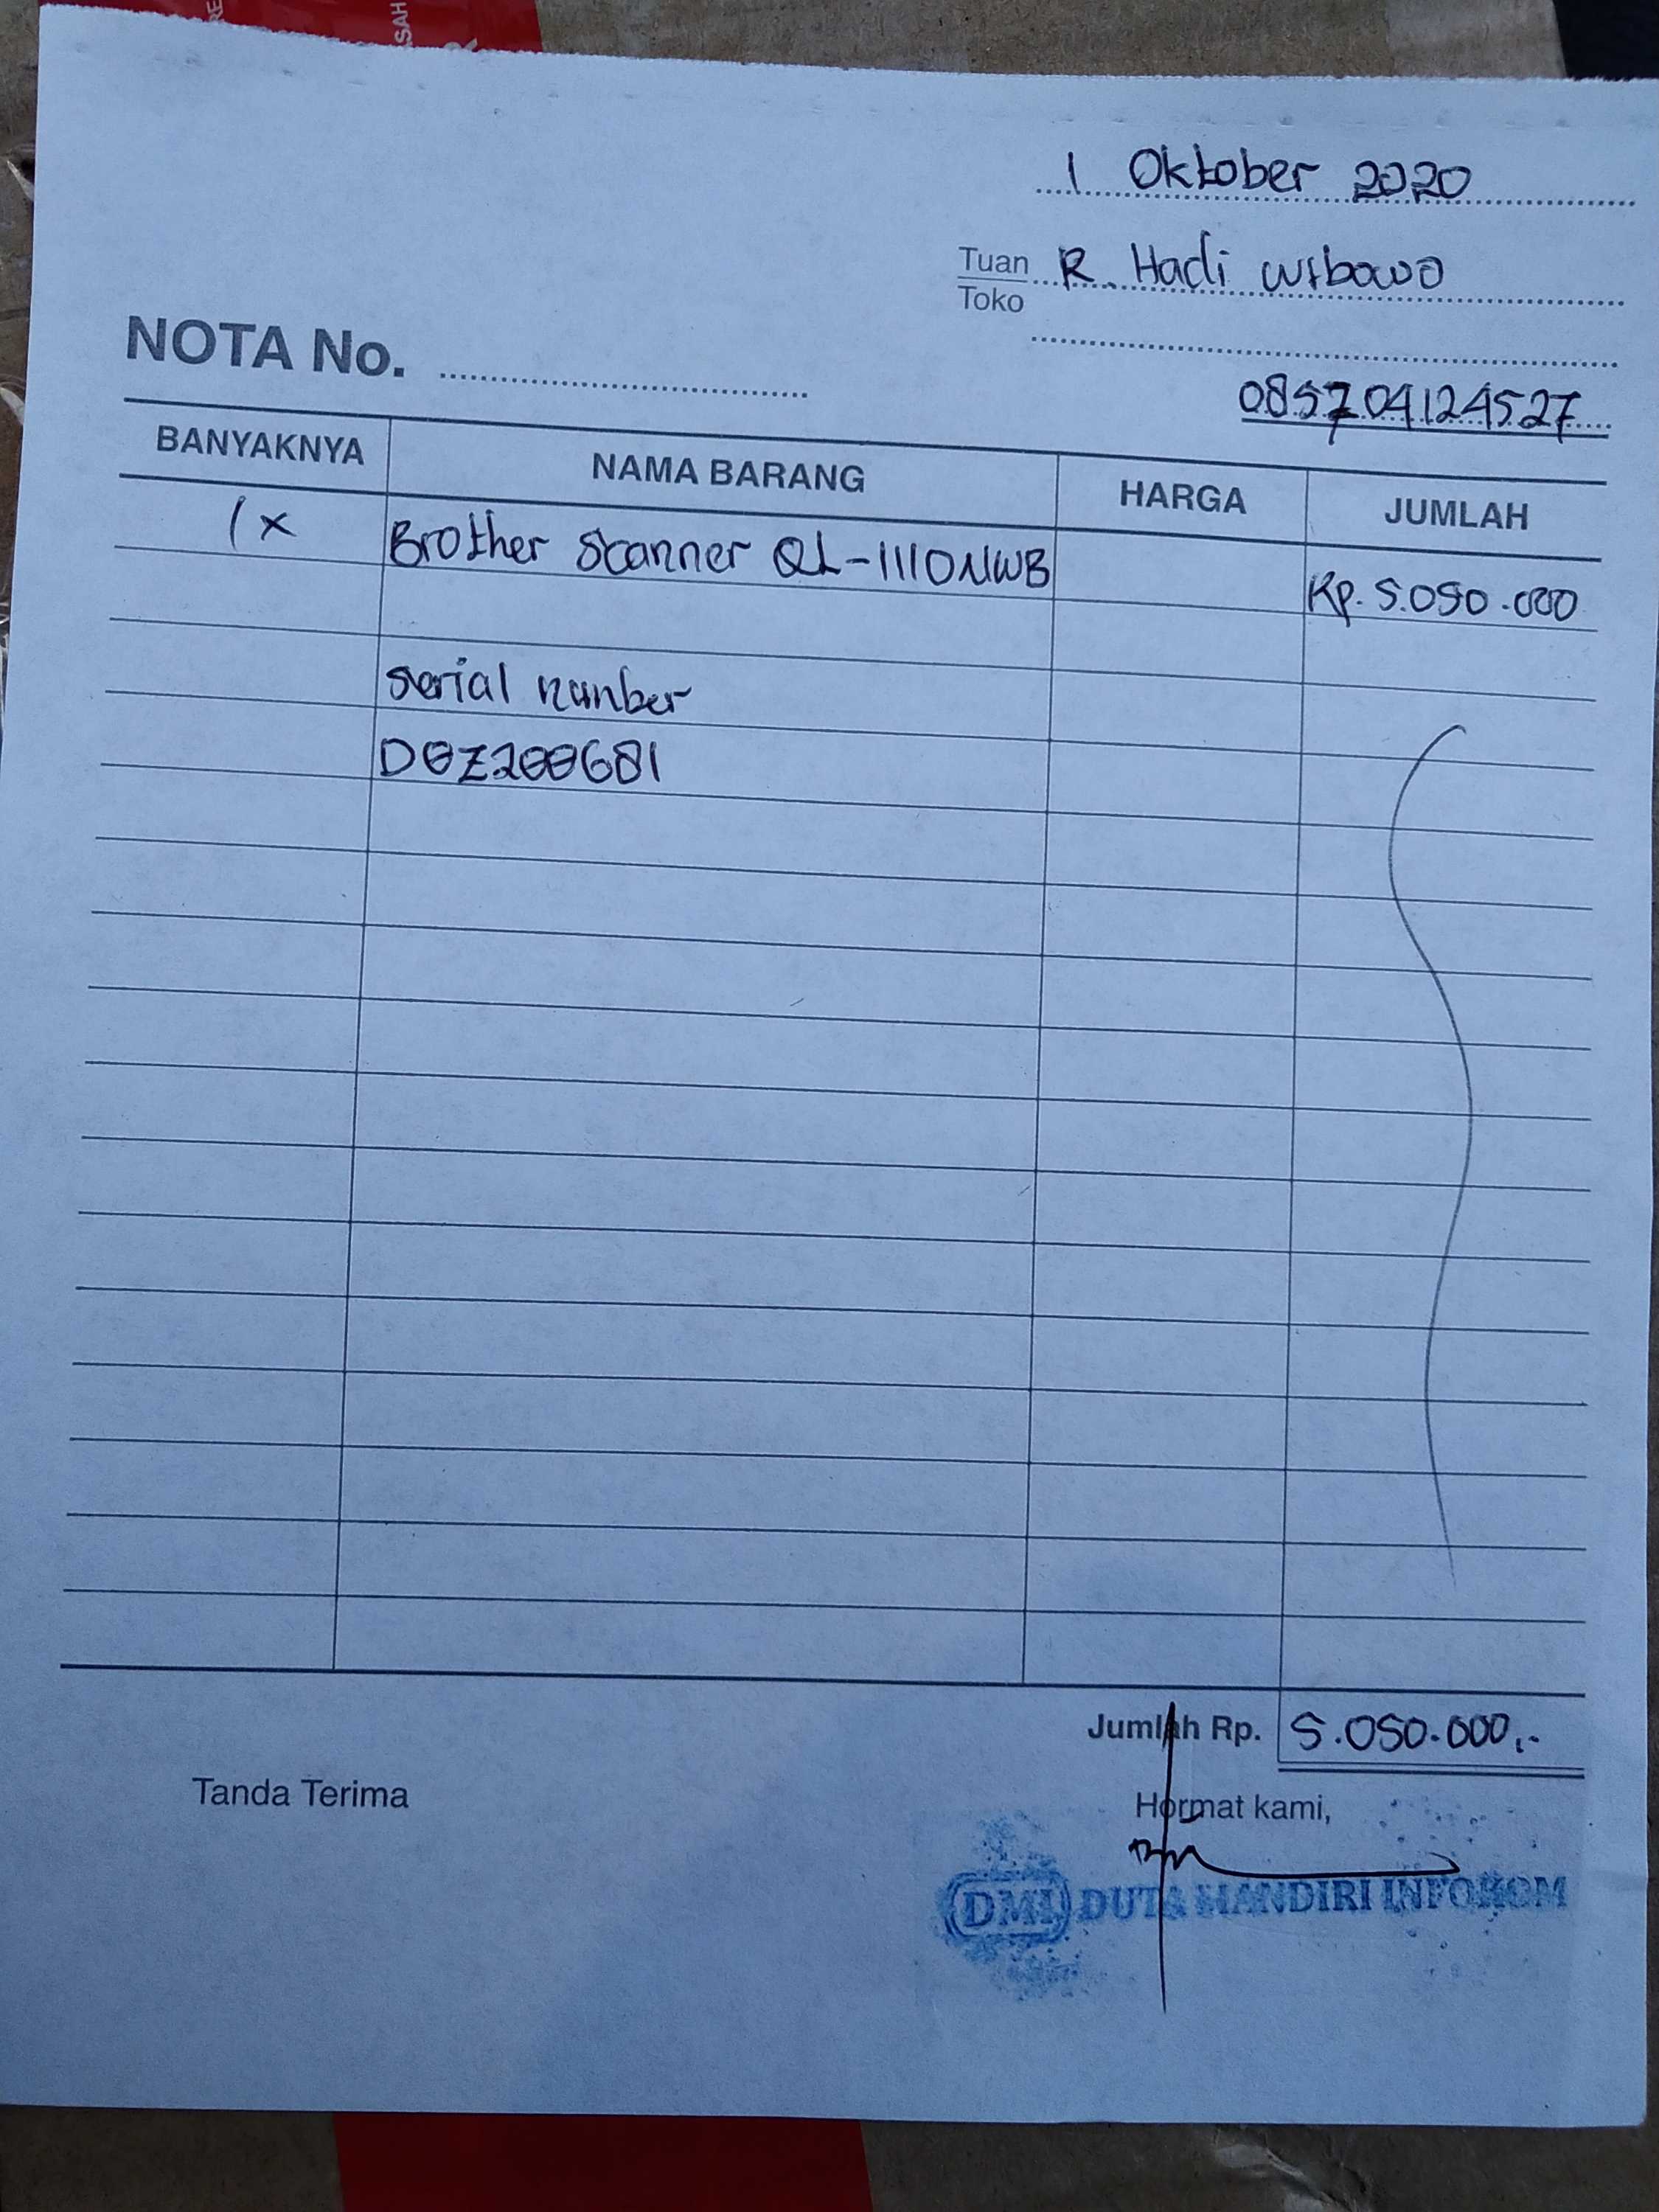 1 Oktober 2020
Tuan R. Hadi Wibowo
Toko
NOTA No.
085704124527
BANYAKNYA NAMA BARANG HARGA JUMLAH
1x Brother Scanner QL-1110NWB Rp. 5.050.000
Serial number
D0Z200681
Jumlah Rp. 5.050.000,-
Tanda Terima Hormat kami,
DMI DUTA MANDIRI INFOKOM